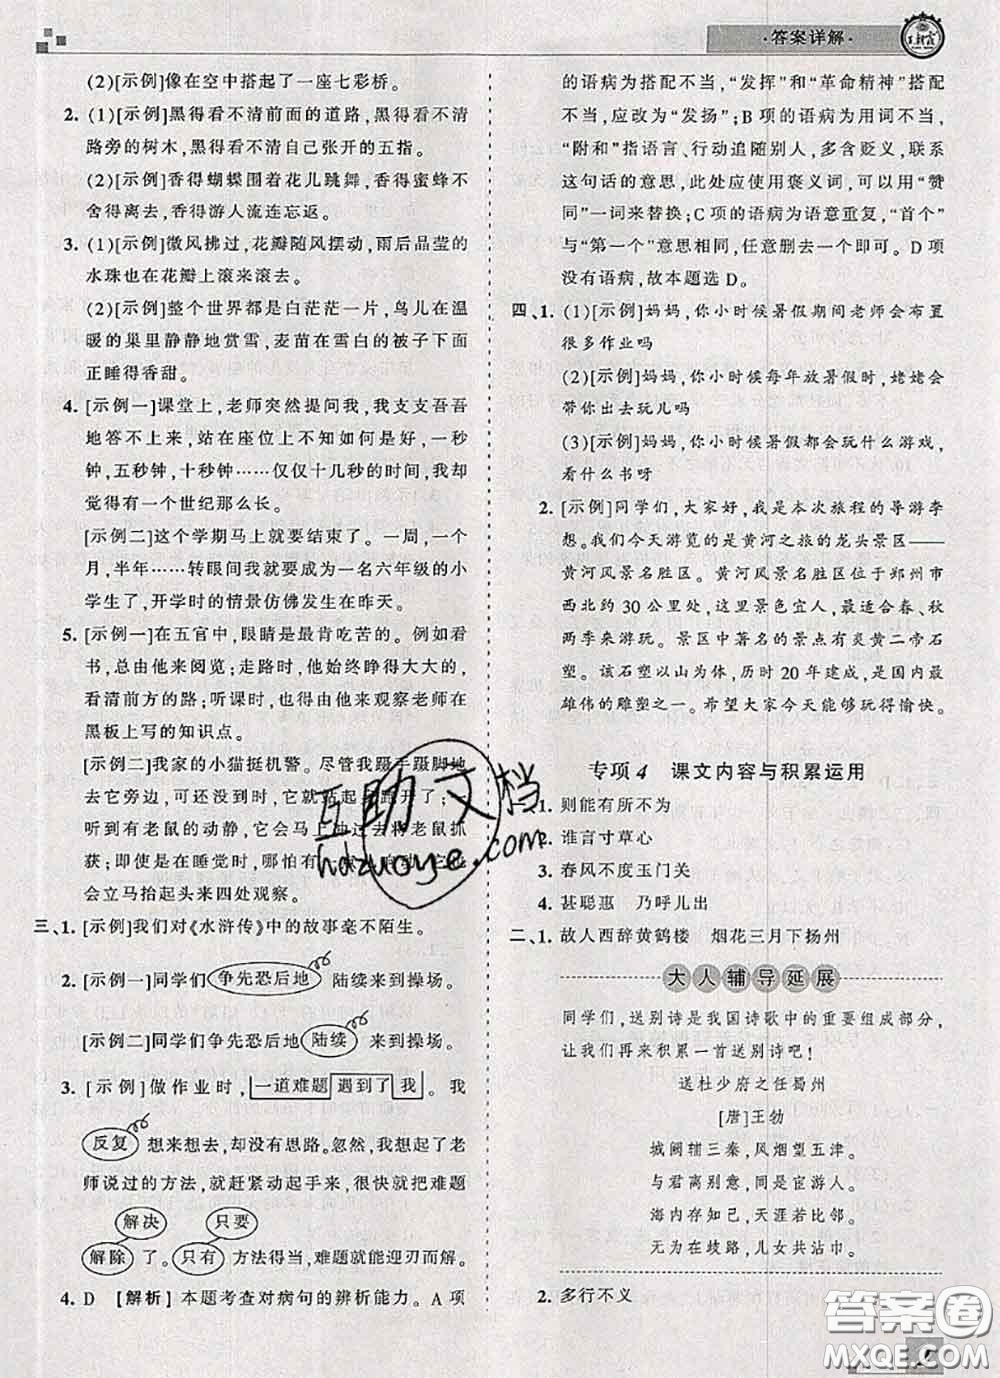 ·答案详解·
王朝霞
(2)[示例]像在空中搭起了一座七彩桥。
2. (1)[示例]黑得看不清前面的道路,黑得看不清
路旁的树木,黑得看不清自己张开的五指。
(2)[示例]香得蝴蝶围着花儿跳舞,香得蜜蜂不
舍得离去,香得游人流连忘返。
3. (1)[示例]微风拂过,花瓣随风摆动,雨后晶莹的
水珠也在花瓣上滚来滚去。
(2)[示例]整个世界都是白茫茫一片,鸟儿在温
暖的巢里静静地赏雪,麦苗在雪白的被子下面
正睡得香甜。
4. [示例一]课堂上,老师突然提问我,我支支吾吾
地答不上来,站在座位上不知如何是好,一秒
钟,五秒钟,十秒钟……仅仅十几秒的时间,我却
觉得有一个世纪那么长。
[示例二]这个学期马上就要结束了。一周,一个
月,半年……转眼间我就要成为一名六年级的小
学生了,开学时的情景仿佛发生在昨天。
5. [示例一]在五官中,眼睛是最肯吃苦的。例如看
书,总由他来阅览;走路时,他始终睁得大大的,
看清前方的路;听课时,也得由他来观察老师在
黑板上写的知识点。
[示例二]我家的小猫挺机警。尽管我蹑手蹑脚
地走在它旁边,可它就站起来跑开了;一
听到有老鼠的动静,它会马上地过去将老鼠抓
获;即使是在睡觉时,哪怕有一点点启动,它也
会立马抬起头来四处观察。
三、1. [示例]我们对《水浒传》中的故事毫不陌生。
2. [示例一]同学们争先恐后地陆续来到操场。
[示例二]同学们争先恐后地陆续来到操场。
3. [示例]做作业时,一道难题遇到了我。我
反复想来想去,却没有思路。忽然,我想到了老
师说过的方法,就赶紧动起手来,很快就把难题
解决 只要
解除了。只有方法得当,难题就能迎刃而解。
4. D [解析]本题考查对病句的辨析能力。A项
的语病为搭配不当,“发挥”和“革命精神”搭配
不当,应改为“发扬”;B项的语病为用词不当,
“附和”指语言、行动追随别人,多含贬义,联系
这句话的意思,此处应使用褒义词,可以用“赞
同”一词来替换;C项的语病为语意重复,“首个”
与“第一个”意思相同,任意删去一个即可。D项
没有语病,故本题选D。
四、1. (1)[示例]妈妈,你小时候暑假期间老师会布置
很多作业吗
(2)[示例]妈妈,你小时候每年放暑假时,姥姥会
带你出去玩儿吗
(3)[示例]妈妈,你小时候暑假都会玩什么游戏,
看什么书呀
2. [示例]同学们,大家好,我是本次旅程的导游李
想。我们今天游览的是黄河之旅的龙头景区——
黄河风景名胜区。黄河风景名胜区位于郑州市
西北约30公里处,这里景色宜人,最适合春、秋
两季来游玩。景区中著名的景点有炎黄二帝石
塑。该石塑以山为体,历时20年建成,是国内最
雄伟的雕塑之一。希望大家今天能够玩得愉快。
专项4 课文内容与积累运用
一、1. 则能有所不为
2. 谁言寸草心
3. 春风不度玉门关
4. 甚聪惠 乃呼儿出
二、1. 故人西辞黄鹤楼 烟花三月下扬州
大人辅导延展
同学们,送别诗是我国诗歌中的重要组成部分,
让我们再来积累一首送别诗吧!
送杜少府之任蜀州
[唐]王勃
城阙辅三秦,风烟望五津。
与君离别意,同是宦游人。
海内存知己,天涯若比邻。
无为在歧路,儿女共沾巾。
2. 多行不义
互助文档
hdzuoye.com
答案圈
MXQE.COM